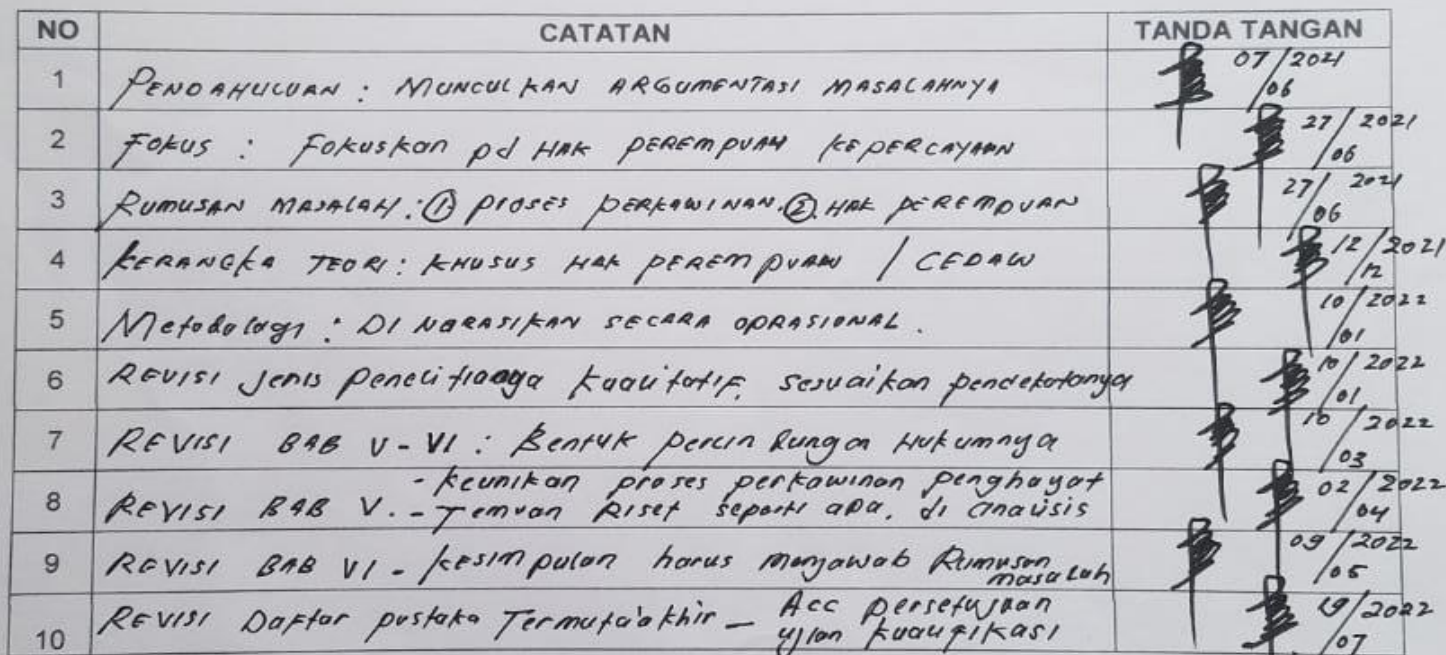 NO CATATAN TANDA TANGAN
1 PENDAHULUAN : MUNCULKAN ARGUMENTASI MASALAHNYA 07/06 2021
2 Fokus : Fokuskan pd HAK PEREMPUAN KEPERCAYAAN 27/06 2021
3 RUMUSAN MASALAH : ① PROSES PERKAWINAN. ② HAK PEREMPUAN 27/06 2021
4 KERANGKA TEORI : KHUSUS HAK PEREMPUAN / CEDAW 12/12 2021
5 Metodologi : DI NARASIKAN SECARA OPRASIONAL. 10/01 2022
6 REVISI Jenis penelitiannya kualitatif, sesuaikan pendekatanya 10/01 2022
7 REVISI BAB V - VI : Bentuk perlindungan Hukumnya 10/03 2022
8 REVISI BAB V. - keunikan proses perkawinan penghayat 02/04 2022
- Temuan Riset seperti apa, di analisis
9 REVISI BAB VI - kesimpulan harus menjawab Rumusan masalah 09/05 2022
10 REVISI Daftar pustaka Termuta'akhir - Acc persetujuan 19/07 2022
ujian kualifikasi